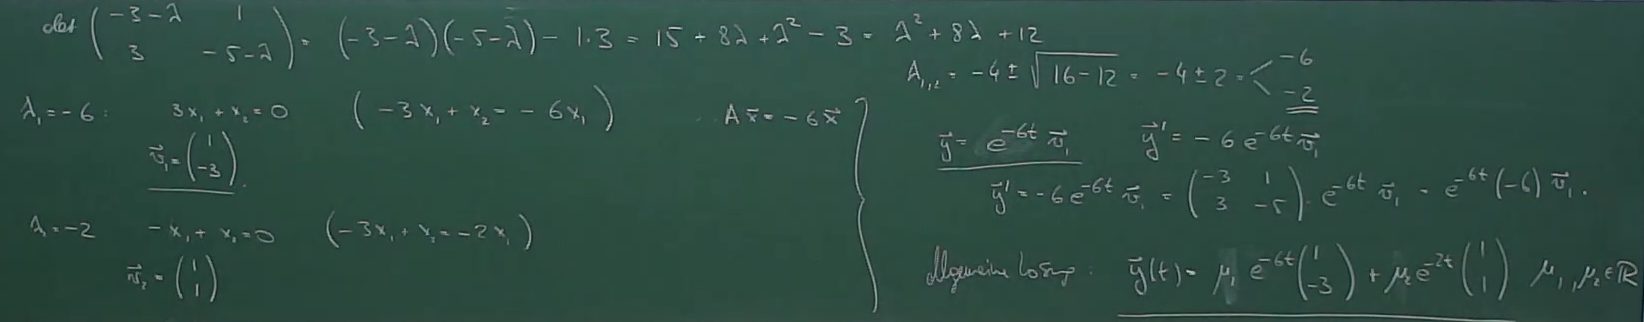 det (−3−λ 1 ; 3 −5−λ) = (−3−λ)(−5−λ) − 1·3 = 15 + 8λ + λ² − 3 = λ² + 8λ + 12
λ₁,₂ = −4 ± √(16−12) = −4 ± 2 = < −6 −2
λ₁ = −6 : 3x₁ + x₂ = 0 (−3x₁ + x₂ = −6x₁) A x⃗ = −6 x⃗
v⃗₁ = (1 ; −3)
λ₁ = −2 −x₁ + x₂ = 0 (−3x₁ + x₂ = −2x₁)
v⃗₂ = (1 ; 1)
y⃗ = e^(−6t) v⃗₁ y⃗' = −6 e^(−6t) v⃗₁
y⃗' = −6 e^(−6t) v⃗₁ = (−3 1 ; 3 −5) · e^(−6t) v⃗₁ = e^(−6t) (−6) v⃗₁ .
Allgemeine Lösung : y⃗(t) = μ₁ e^(−6t) (1 ; −3) + μ₂ e^(−2t) (1 ; 1) μ₁, μ₂ ∈ ℝ